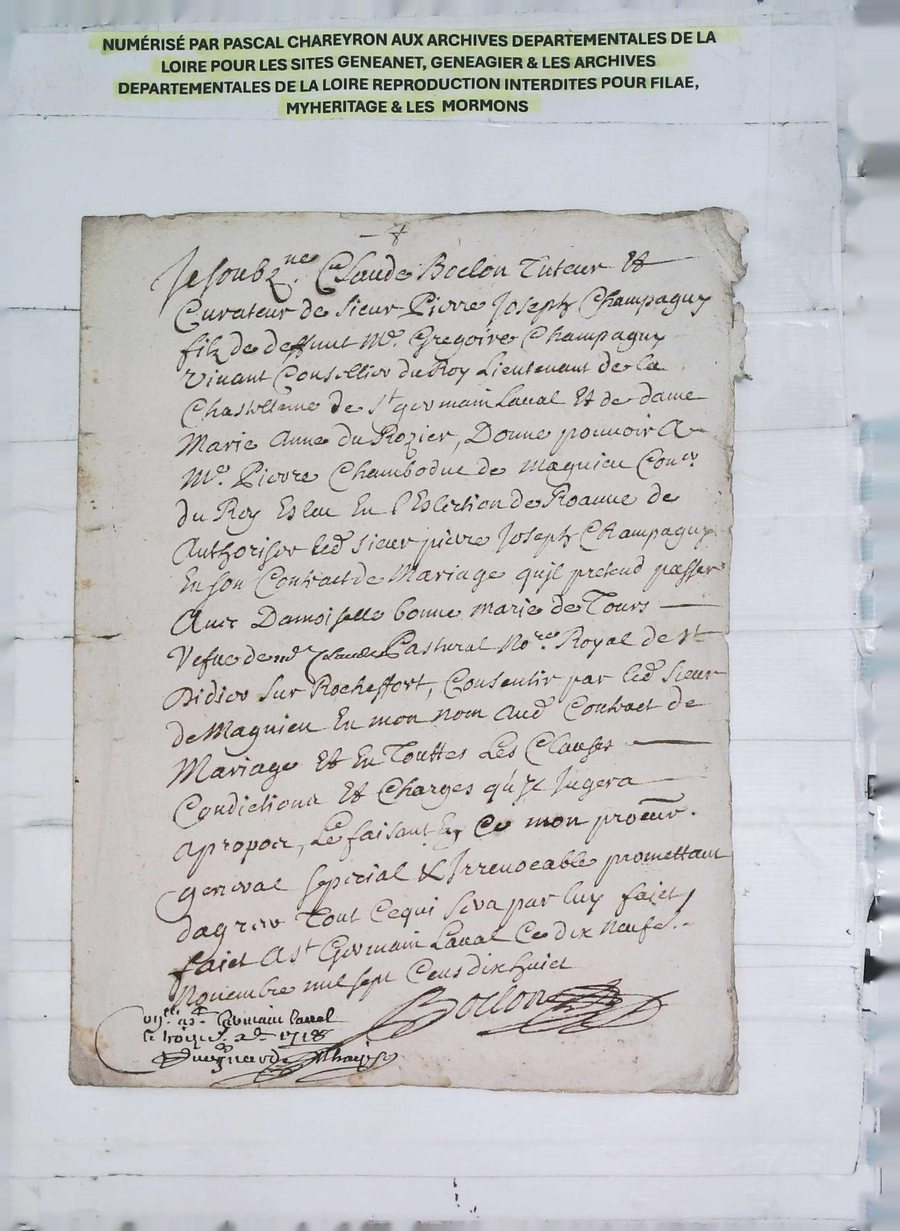 NUMÉRISÉ PAR PASCAL CHAREYRON AUX ARCHIVES DEPARTEMENTALES DE LA
LOIRE POUR LES SITES GENEANET, GENEAGIER & LES ARCHIVES
DEPARTEMENTALES DE LA LOIRE REPRODUCTION INTERDITES POUR FILAE,
MYHERITAGE & LES MORMONS
Je soubz.né Claude Boclon Tuteur Et
Curateur de sieur Pierre Joseph Champagny
filz de deffunt Me. Gregoire Champagny
vivant Conseillier du Roy Lieutenant de la
Chastellenie de St germain Laval Et de dame
Marie Anne du Rozier, Donne pouvoir A
Me. Pierre Chamboduc de Magnieu Conser.
du Roy Esleu En l'Eslection de Roanne de
Authoriser led sieur pierre Joseph Champagny
En son Contract de Mariage qu'il pretend passer
Avec Damoiselle bonne Marie de Tours
Vefve de Me Claude Pastural Nore. Royal de St
Didier sur Rocheffort, Consentir par led sieur
de Magnieu En mon nom Aud Contract de
Mariage Et En Touttes Les Clauses
Condictions Et Charges qu'il Jugera
Apropos, Le faisant En Ce mon procur.
general special & Irrevocable promettant
dagreer Tout Ce qui sera par luy faict,
faict A St Germain Laval Ce dix Neufe.
Novembre mil sept Cens dix huict
Boclon
Germain Laval
1718